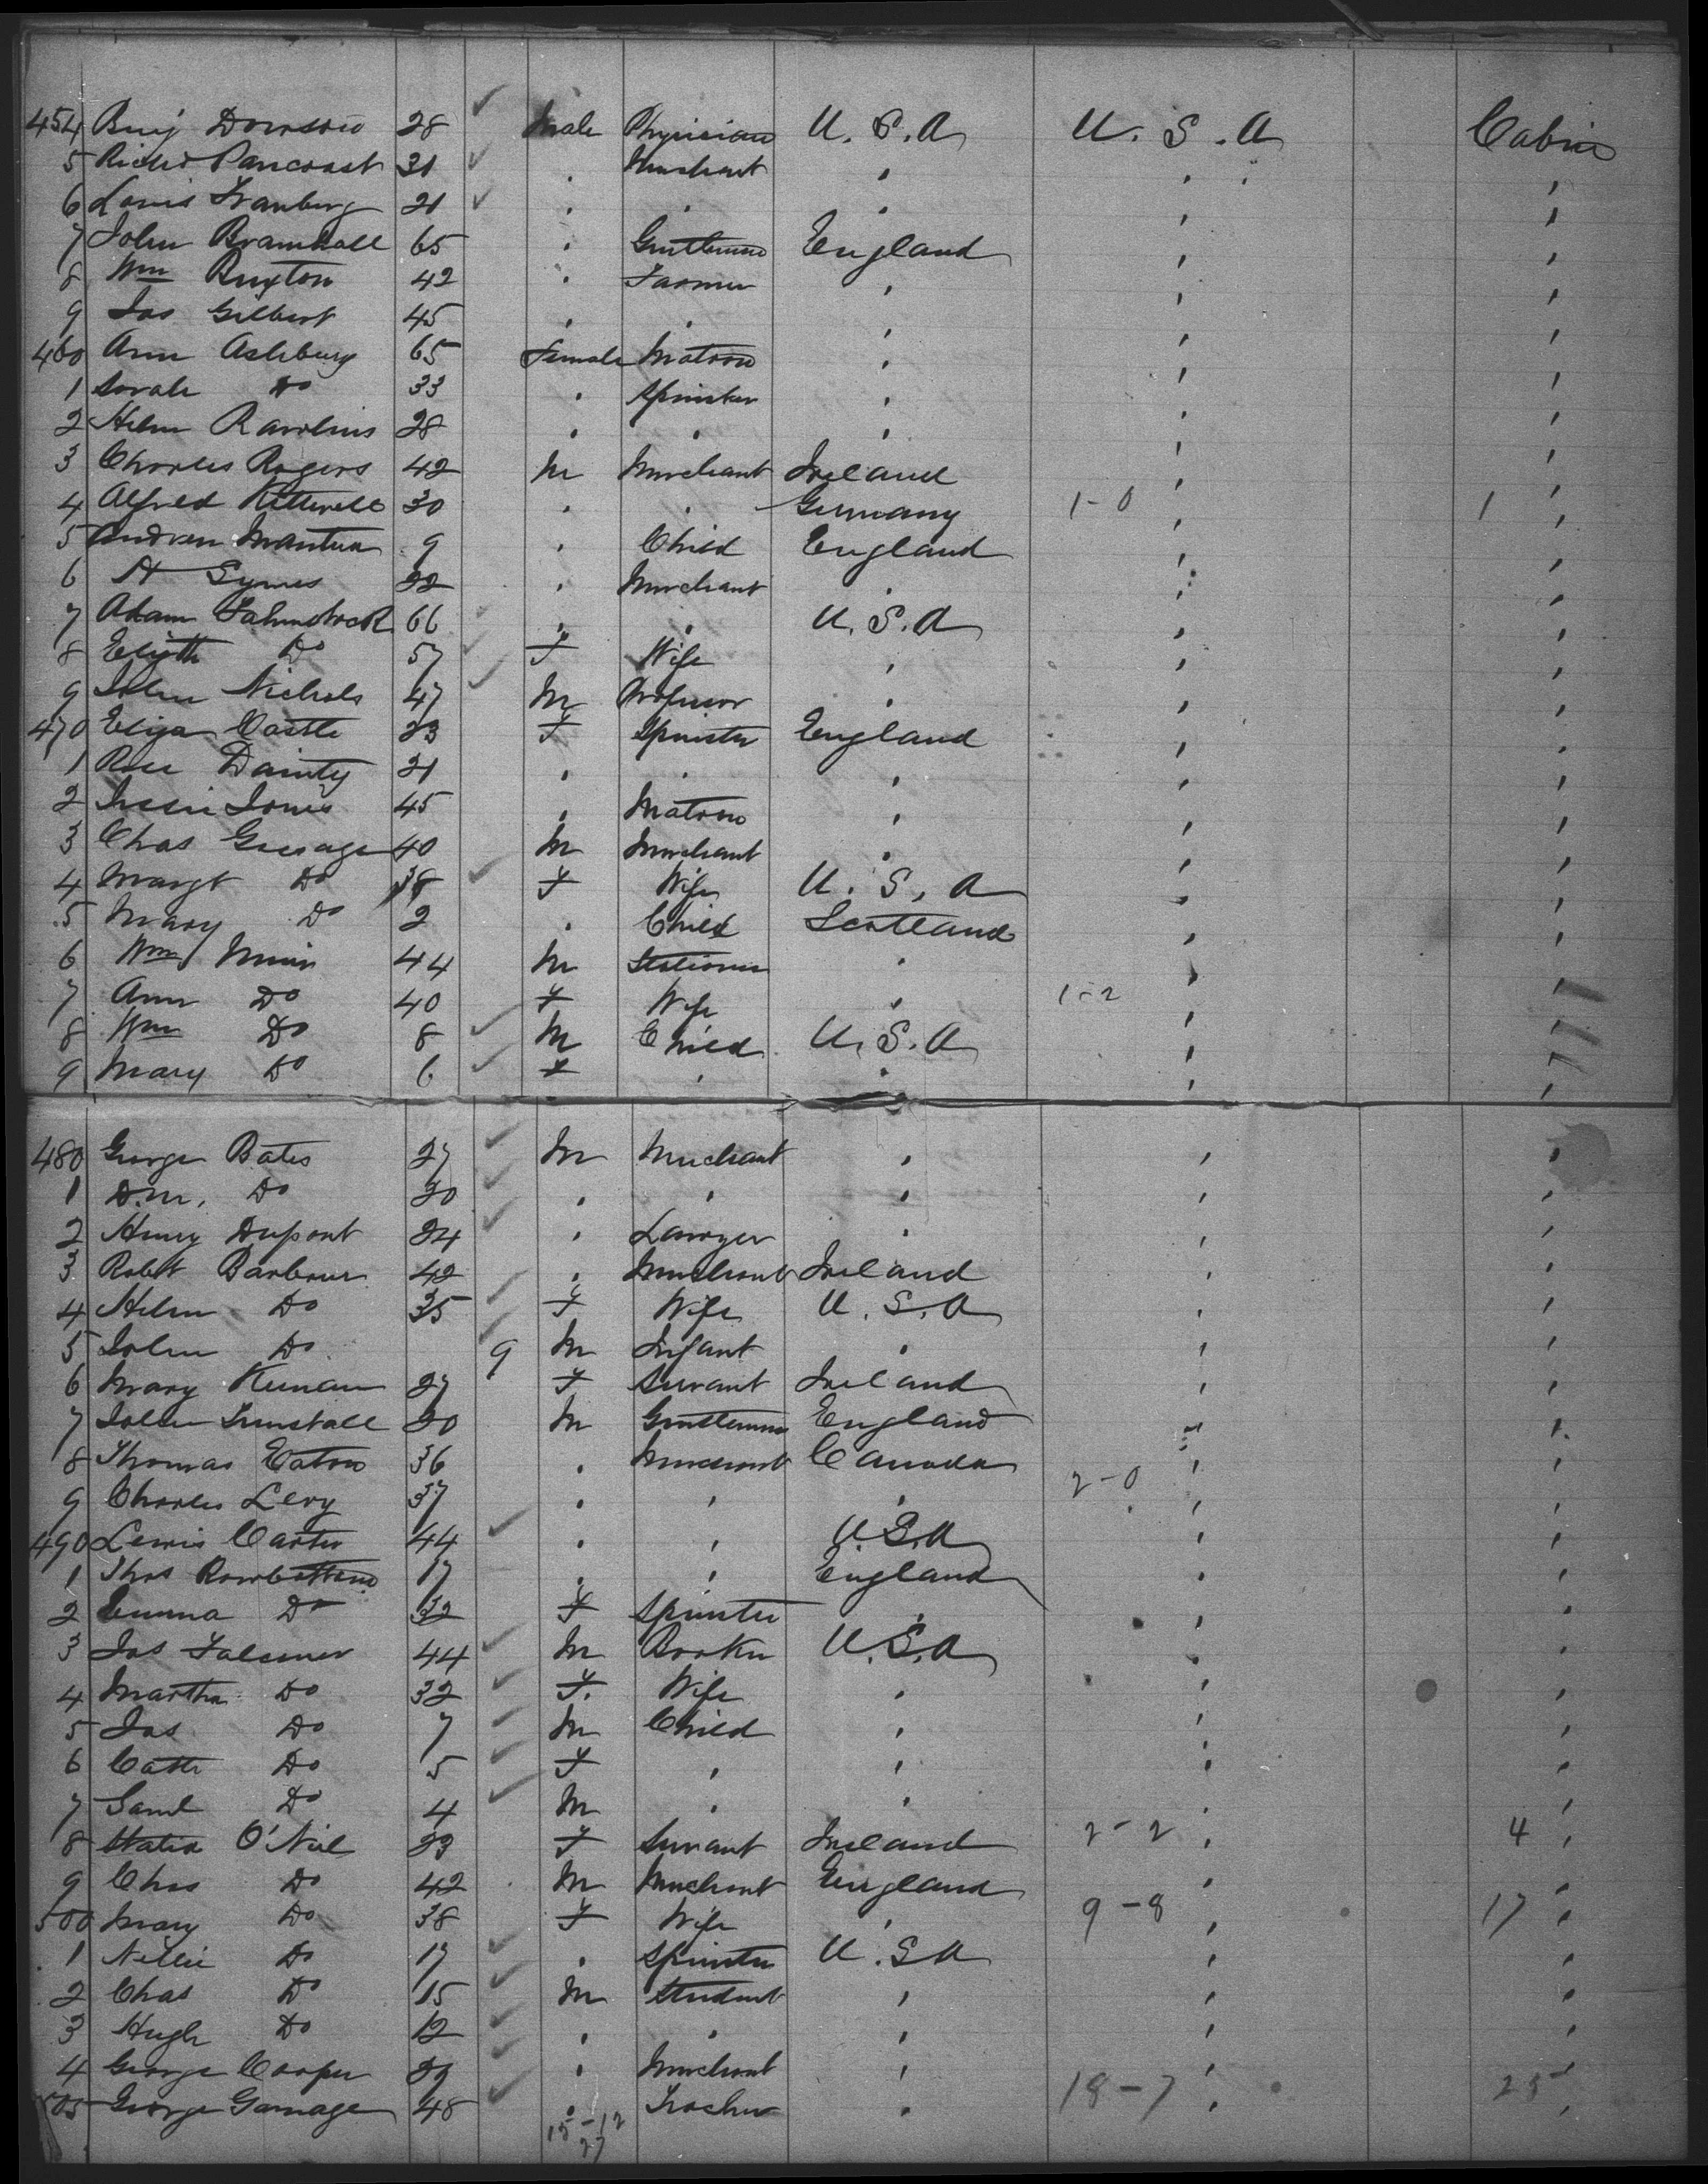 454 Benj Dowson 28 Male Physician U.S.A U.S.A Cabin
5 Richd Pancoast 31 " Merchant " " "
6 Louis 21 " " " " "
7 John Bramhall 65 " Gentleman England " "
8 Wm Buxton 42 " Farmer " " "
9 Jas Gilbert 45 " " " " "
460 Ann Ashbury 65 Female Matron " " "
1 Sarah Do 33 " Spinster " " "
2 Helen Rawlins 28 " " " " "
3 Charles Rogers 42 M Merchant Ireland " "
4 Alfred Kittwell 30 " " Germany 1-0 " 1 "
5 Andrew 9 " Child England " "
6 A Symes 22 " Merchant " " "
7 Adam Fahnestock 66 " " U.S.A " "
8 Elizth Do 57 F Wife " " "
9 John Nichols 47 M Professor " " "
470 Eliza Castle 23 F Spinster England " "
1 Rose Dainty 21 " " " " "
2 Jessie Jones 45 " Matron " " "
3 Chas 40 M Merchant " " "
4 Margt Do 38 F Wife U.S.A " "
5 Mary Do 2 " Child Scotland " "
6 Wm Muir 44 M Stationer " " "
7 Ann Do 40 F Wife " 1-2 " "
8 Wm Do 8 M Child U.S.A " "
9 Mary Do 6 F " " " "
480 George Bates 27 M Merchant " " "
1 D.M. Do 20 " " " " "
2 Henry Dupont 24 " Lawyer " " "
3 Robt Barbour 42 " Merchant Ireland " "
4 Helen Do 35 F Wife U.S.A " "
5 John Do 9 M Infant " " "
6 Mary Keenan 27 F Servant Ireland " "
7 John Tunstall 20 M Gentleman England " "
8 Thomas Eaton 36 " Merchant Canada " "
9 Charles Levy 37 " " " 2-0 " "
490 Lewis Carter 44 " " U.S.A " "
1 Thos Rowbottom 17 " " England " "
2 Emma Do 32 F Spinster " " "
3 Jas Falconer 44 M U.S.A " "
4 Martha Do 32 F. Wife " " "
5 Jas Do 7 M Child " " "
6 Cath Do 5 F " " " "
7 Saml Do 4 M " " " "
8 Statia O'Niel 23 F Servant Ireland 2-2 " 4 "
9 Chas Do 42 M Merchant England " "
500 Mary Do 38 F Wife " 9-8 " 17 "
1 Nellie Do 17 " Spinster U.S.A " "
2 Chas Do 15 M Student " " "
3 Hugh Do 12 " " " " "
4 George Cooper 29 " Merchant " " "
505 George Gamage 48 " " 18-7 " 25 "
15-12
27